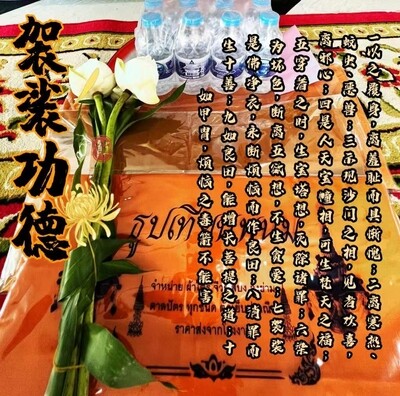 袈裟功德
一以之覆身,离羞耻而具惭愧;二离寒热、
蚊虫、恶兽;三示现沙门之相,见者欢喜,
离邪心;四是人天宝幢相,可生梵天之福;
五穿着之时,生宝塔想,灭除诸罪;六染
为坏色,断离五欲想,不生贪爱;七袈裟
是佛净衣,永断烦恼而作良田;八消罪而
生十善;九如良田,能增长菩提之道;十
如甲胄,烦恼之毒箭不能害
ธูปเทียน
จำหน่าย
ตาลปัตร ทุกชนิด
ราคาส่งจาก